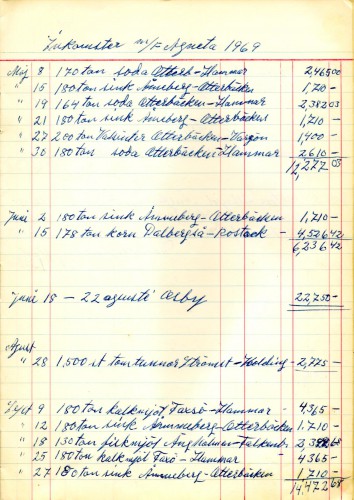 Inkomster m/s Agneta 1969
Maj 8 170 ton soda Otterb-Hammar 2,465 00
" 15 180 ton sink Åmeberg-Otterbäcken 1,710 -
" 19 164 ton soda Otterbäcken-Hammar 2,382 03
" 21 180 ton sink Åmeberg-Otterbäcken 1,710 -
" 27 200 ton Otterbäcken-Vargön 1,400 -
" 30 180 ton soda Otterbäcken-Hammar 2610 -
12,277 03
Juni 2 180 ton sink Åmmeberg-Otterbäcken 1,710 -
" 15 178 ton korn Dalbergså-Rostock - 4,526 42
6,236 42
Juni 18 - 22 augusti Orby 22,750 -
August
" 28 1,500 st tomtunnor Strömst-Kolding - 2,775 -
Sept 9 180 ton kalkmjöl Faxö-Hammar - 4365 -
" 12 180 ton sink Åmmeberg-Otterbäcken 1,710 -
" 18 130 ton fiskmjöl Ängholmen-Falkenb. 68
" 25 180 ton kalkmjöl Faxö-Hammar 4365 -
" 27 180 ton sink Åmmeberg-Otterbäcken 1,710 -
14,472 68